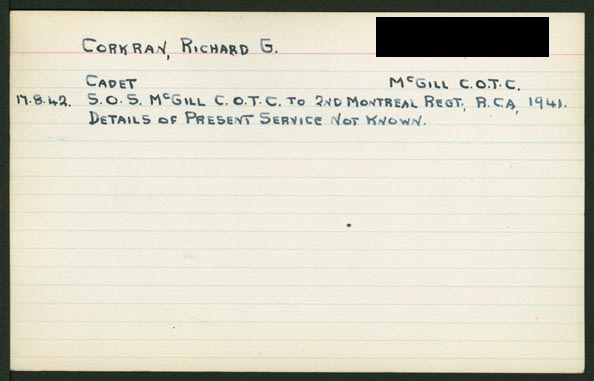 CORKRAN, RICHARD G.
CADET McGILL C.O.T.C.
17.8.42. S.O.S. McGILL C.O.T.C. TO 2ND MONTREAL REGT., R.C.A, 1941.
DETAILS OF PRESENT SERVICE NOT KNOWN.